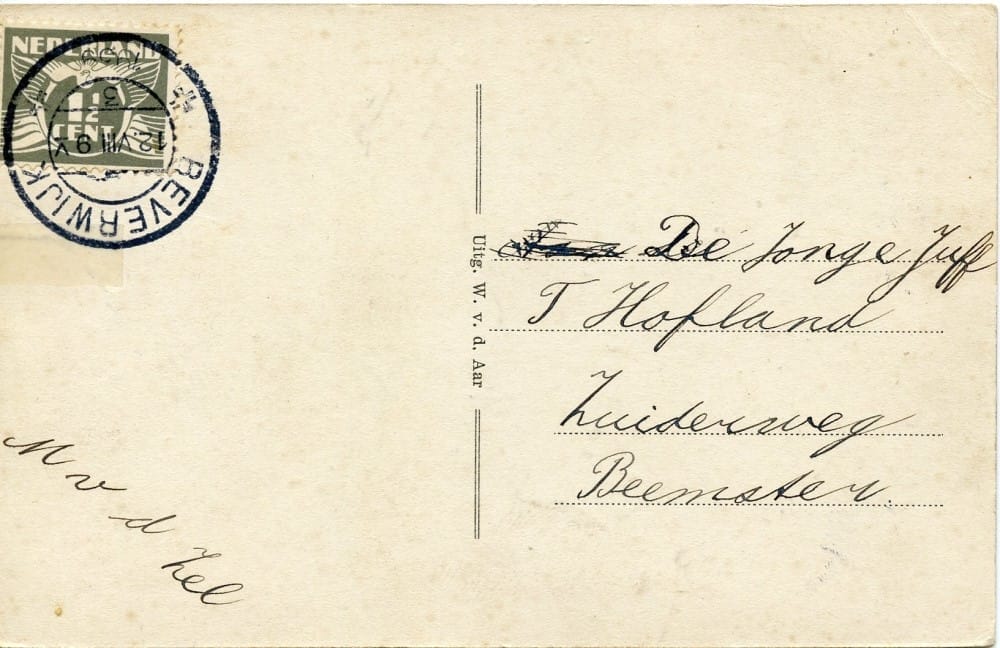 NEDERLAND
1½
CENT
BEVERWIJK
12.VIII 9 V
3
Uitg. W. v. d. Aar
De Jonge Juff
T Hofland
Zuiderweg
Beemster.
M v d Zel